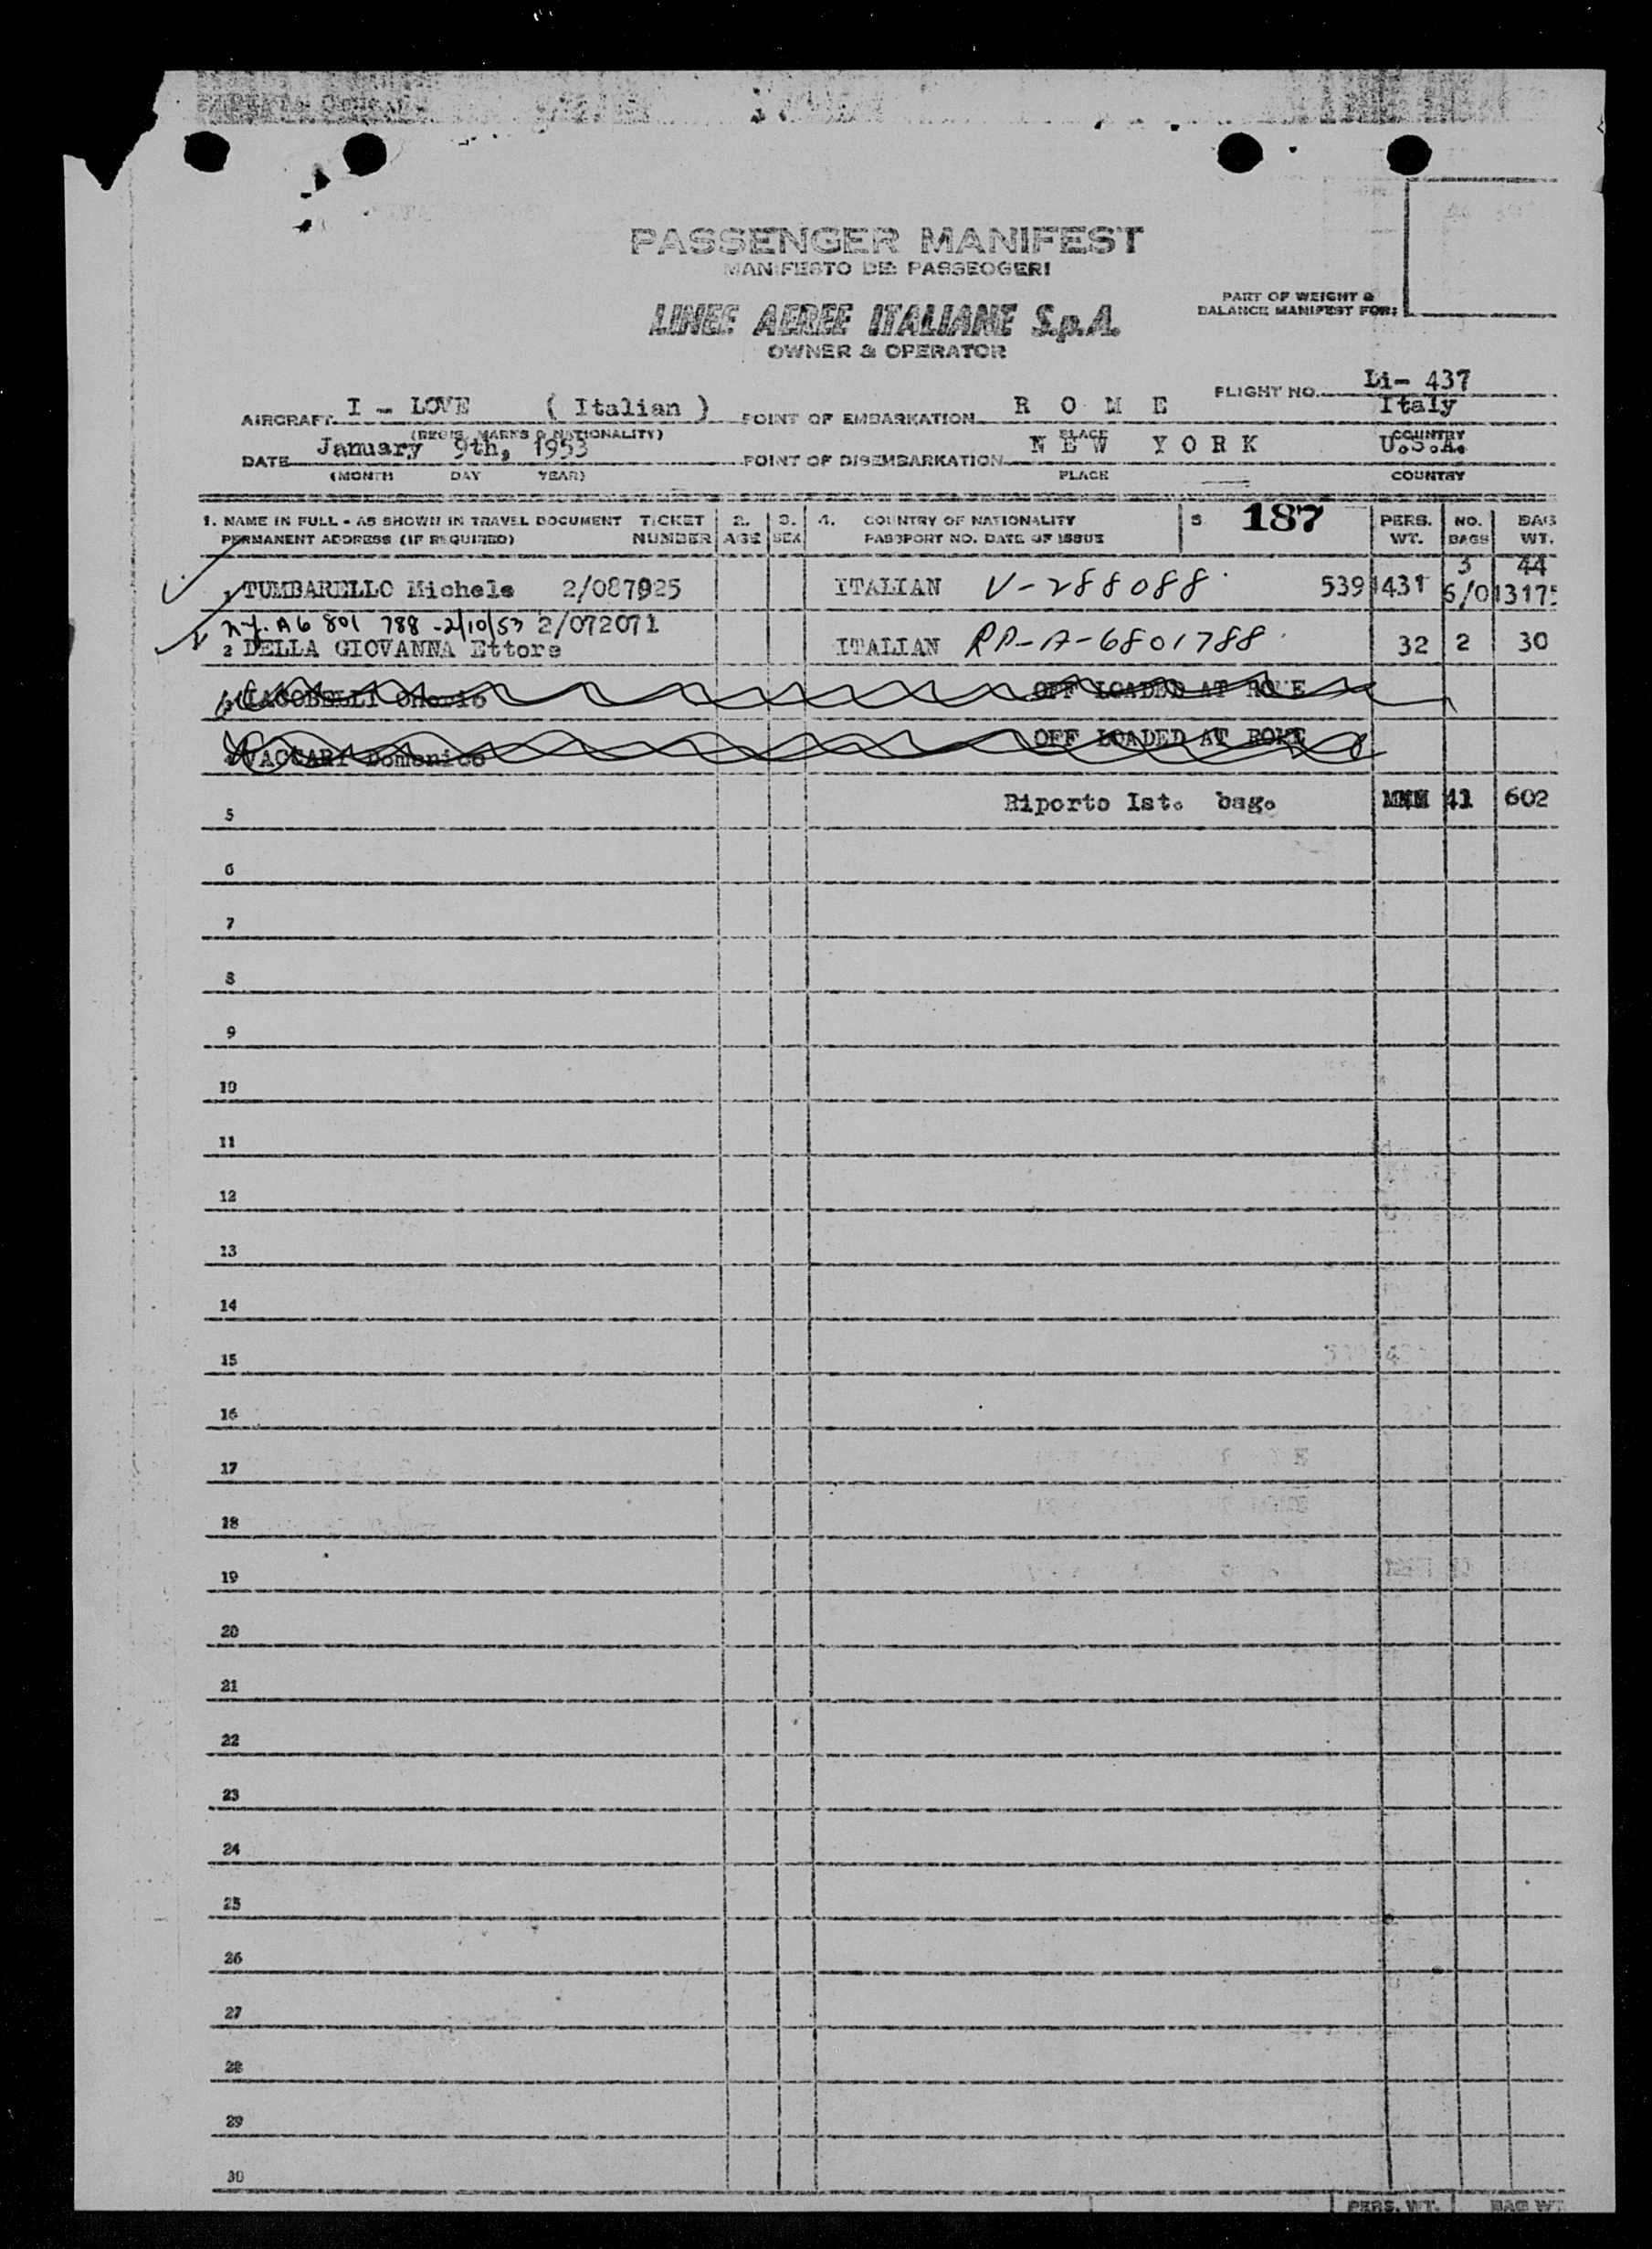 PASSENGER MANIFEST
MANIFESTO DEI PASSEOGERI
LINEE AEREE ITALIANE S.p.A.
OWNER & OPERATOR
PART OF WEIGHT &
BALANCE MANIFEST FOR:
FLIGHT NO. Li- 437
AIRCRAFT I - LOVE ( Italian ) POINT OF EMBARKATION R O M E Italy
(REGIS. MARKS & NATIONALITY) PLACE COUNTRY
DATE January 9th, 1953 POINT OF DISEMBARKATION N E W Y O R K U.S.A.
(MONTH DAY YEAR) PLACE COUNTRY
1. NAME IN FULL - AS SHOWN IN TRAVEL DOCUMENT TICKET 2. 3. 4. COUNTRY OF NATIONALITY 5 187 PERS. NO. BAG
PERMANENT ADDRESS (IF REQUIRED) NUMBER AGE SEX PASSPORT NO. DATE OF ISSUE WT. BAGS WT.
3 44
TUMBARELLO Michele 2/087925 ITALIAN V-288088 539 431
N.Y. A6 801 788 - 2/10/53 2/072071
2 DELLA GIOVANNA Ettore ITALIAN RP-A-6801788 32 2 30
IACOBELLI OFF LOADED AT ROME
VACCARI Domenico OFF LOADED AT ROME
5 Riporto Ist. bag. 41 602
6
7
8
9
10
11
12
13
14
15
16
17
18
19
20
21
22
23
24
25
26
27
28
29
30
PERS. WT. BAG WT